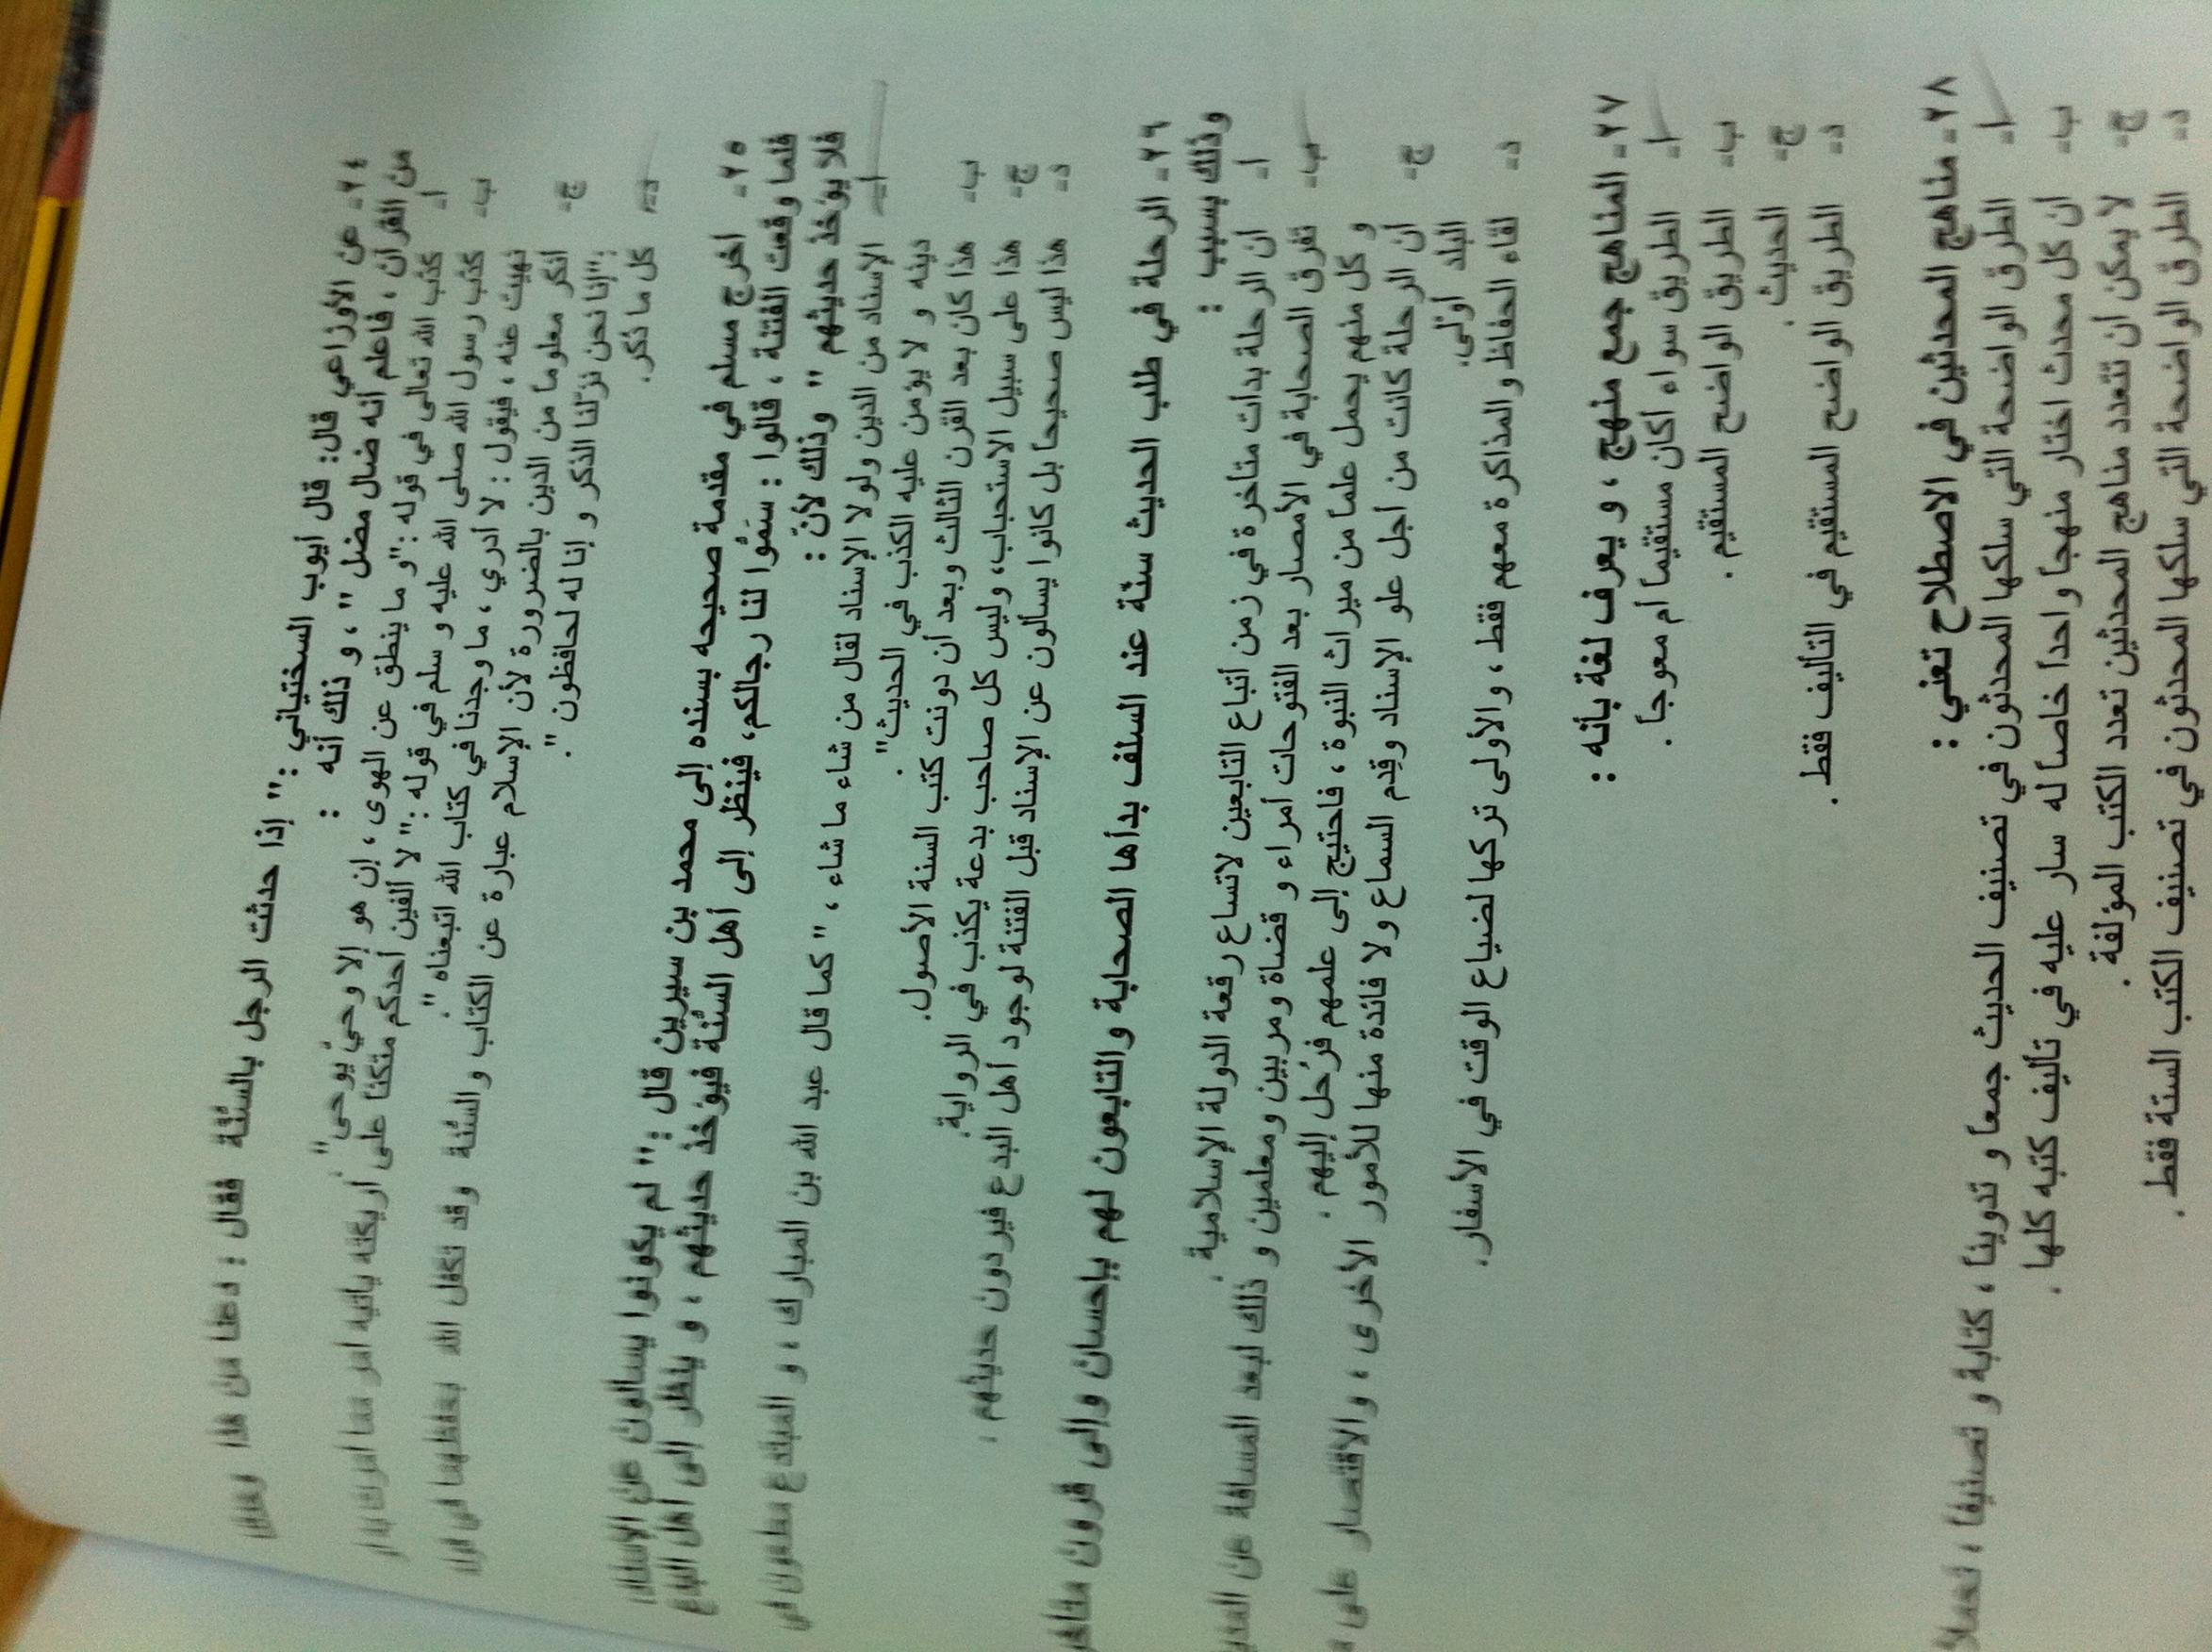 ٢٤- عن الأوزاعي قال: قال أيوب السختياني :" إذا حدثت الرجل بالسُنّة فقال : دعنا من هذا
من القرآن ، فاعلم أنه ضال مضل " ، و ذلك أنه :
أ- كذب الله تعالى في قوله :"و ما ينطق عن الهوى ، إن هو إلا وحيٌ يوحى" .
ب- كذب رسول الله صلى الله عليه و سلم في قوله :" لا ألفين أحدكم متكئاً على أريكته يأتيه أمر مما أمرت به أو
نهيت عنه ، فيقول : لا أدري ، ما وجدنا في كتاب الله اتبعناه ".
ج- أنكر معلوماً من الدين بالضرورة لأن الإسلام عبارة عن الكتاب و السُنة وقد تكفل الله بحفظهما في قوله
:"إنا نحن نزّلنا الذكر و إنا له لحافظون ".
د- كل ما ذكر .
٢٥- أخرج مسلم في مقدمة صحيحه بسنده إلى محمد بن سيرين قال :" لم يكونوا يسألون عن الإسناد
فلما وقعت الفتنة ، قالوا : سمّوا لنا رجالكم، فينظر إلى أهل السُنة فيؤخذ حديثهم ، و ينظر إلى أهل البدع
فلا يؤخذ حديثهم " وذلك لأنّ :
أ- الإسناد من الدين ولولا الإسناد لقال من شاء ما شاء ، " كما قال عبد الله بن المبارك ، و المبتدع مطعون في
دينه و لا يؤمن عليه الكذب في الحديث".
ب- هذا كان بعد القرن الثالث وبعد أن دونت كتب السنة الأصول.
ج- هذا على سبيل الاستحباب، وليس كل صاحب بدعة يكذب في الرواية.
د- هذا ليس صحيحاً بل كانوا يسألون عن الإسناد قبل الفتنة لوجود أهل البدع فيردون حديثهم .
٢٦- الرحلة في طلب الحديث سنّة عند السلف بدأها الصحابة والتابعون لهم بإحسان وإلى قرون
وذلك بسبب :
أ- أن الرحلة بدأت متأخرة في زمن أتباع التابعين لاتساع رقعة الدولة الإسلامية .
ب- تفرق الصحابة في الأمصار بعد الفتوحات أمراء و قضاة ومربين ومعلمين و ذلك لبعد المسافة عن
و كل منهم يحمل علماً من ميراث النبوة ، فاحتيج إلى علمهم فرُحل إليهم .
ج- أن الرحلة كانت من أجل علو الإسناد وقِدم السماع ولا فائدة منها للأمور الأخرى ، والاقتصار على
البلد أولى.
د- لقاء الحفاظ والمذاكرة معهم فقط ، والأولى تركها لضياع الوقت في الأسفار.
٢٧- المناهج جمع منهج ، و يعرف لغة بأنه :
أ- الطريق سواء أكان مستقيماً أم معوجاً .
ب- الطريق الواضح المستقيم .
ج- الحديث .
د- الطريق الواضح المستقيم في التأليف فقط .
٢٨- مناهج المحدثين في الاصطلاح تعني :
أ- الطرق الواضحة التي سلكها المحدثون في تصنيف الحديث جمعاً و تدويناً ، كتابة و تصنيفاً ،
ب- أن كل محدث اختار منهجاً واحداً خاصاً له سار عليه في تأليف كتبه كلها .
ج- لا يمكن أن تتعدد مناهج المحدثين تعدد الكتب المؤلفة .
د- الطرق الواضحة التي سلكها المحدثون في تصنيف الكتب الستة فقط .